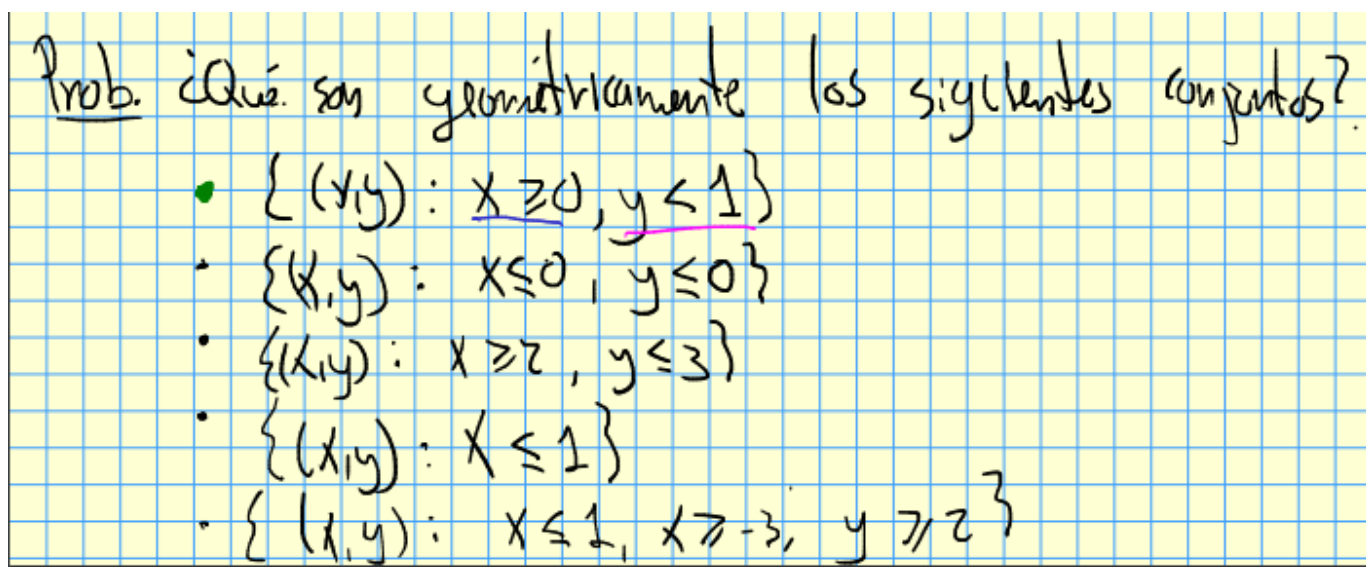 Prob. ¿Qué son geométricamente los siguientes conjuntos?
• {(x,y): x ≥ 0, y < 1}
• {(x,y): x ≤ 0, y ≤ 0}
• {(x,y): x ≥ 2, y ≤ 3}
• {(x,y): x ≤ 1}
• {(x,y): x ≤ 1, x ≥ -3, y ≥ 2}